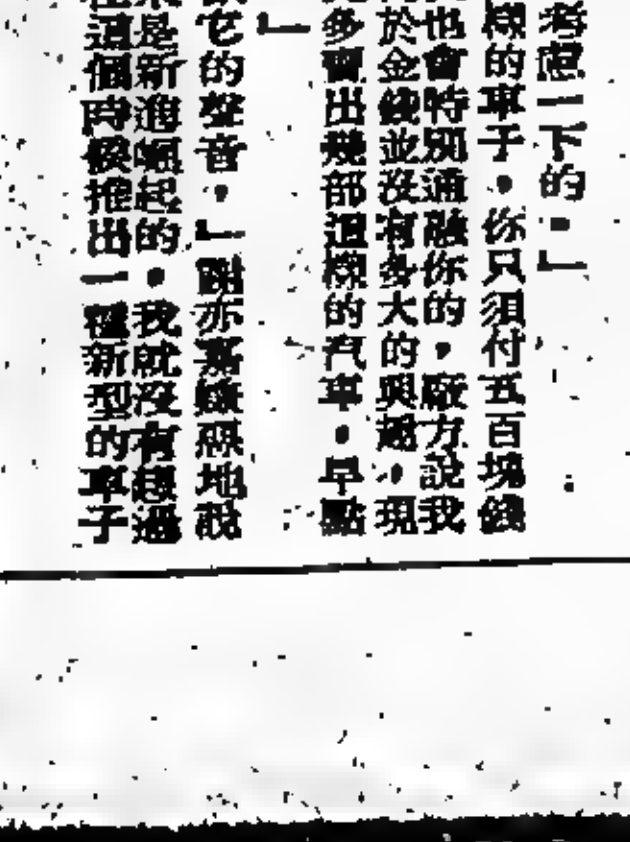 考慮一下的。」
樣的車子。你只須付五百塊錢
也會特別通融你的，廠方說我
於金錢並沒有多大的興趣，現
多賣出幾部這樣的汽車。早點
」
它的聲音。」謝亦嘉嫌惡地說
是新進崛起的。我就沒有聽過
這個時候推出一種新型的車子